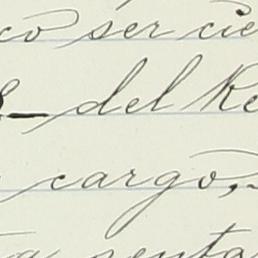 co ser cie
del Re
cargo,
a senta